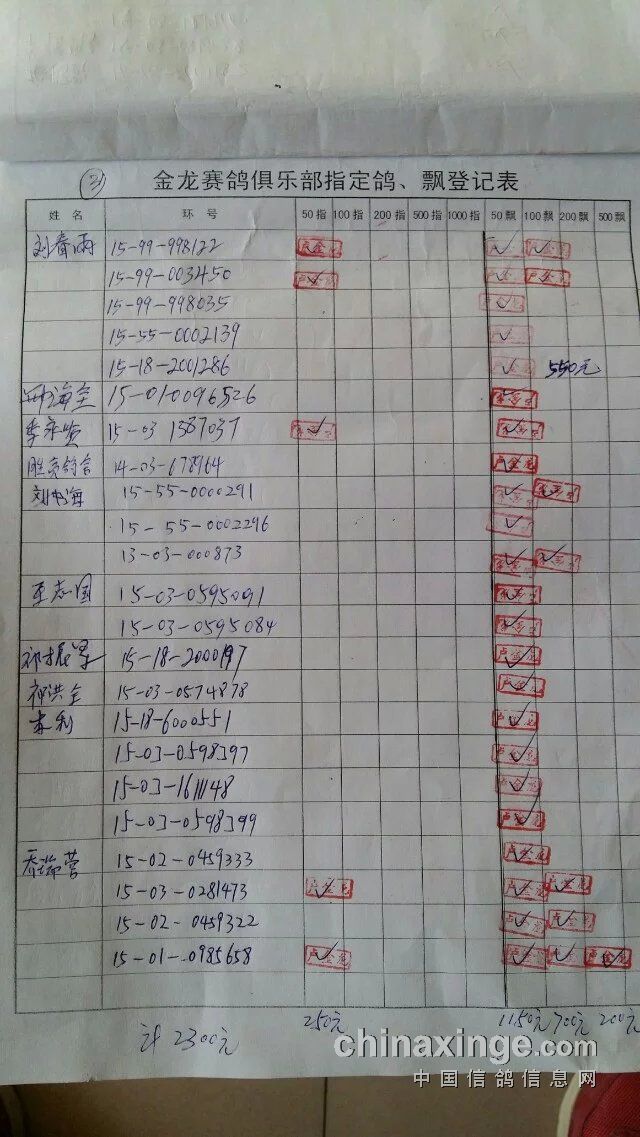 3
金龙赛鸽俱乐部指定鸽、飘登记表
姓名 环号 50指 100指 200指 500指 1000指 50飘 100飘 200飘 500飘
刘春雨 15-99-998122
15-99-003450
15-99-998035
15-55-0002139
15-18-2001286 550元
海全 15-01-0096526
15-03 1387037
14-03-678964
刘中海 15-55-0000291
15-55-0002296
13-03-000873
王志国 15-03-0595091
15-03-0595084
祁振军 15-18-2000197
神洪全 15-03-0574878
李利 15-18-6000551
15-03-0598397
15-03-1611148
15-03-0598399
乔瑞营 15-02-0459333
15-03-0281473
15-02-0459322
15-01-0985658 卢金龙
250元 1150元 700元 200元
计 2300元
chinaxinge.com
中国信鸽信息网